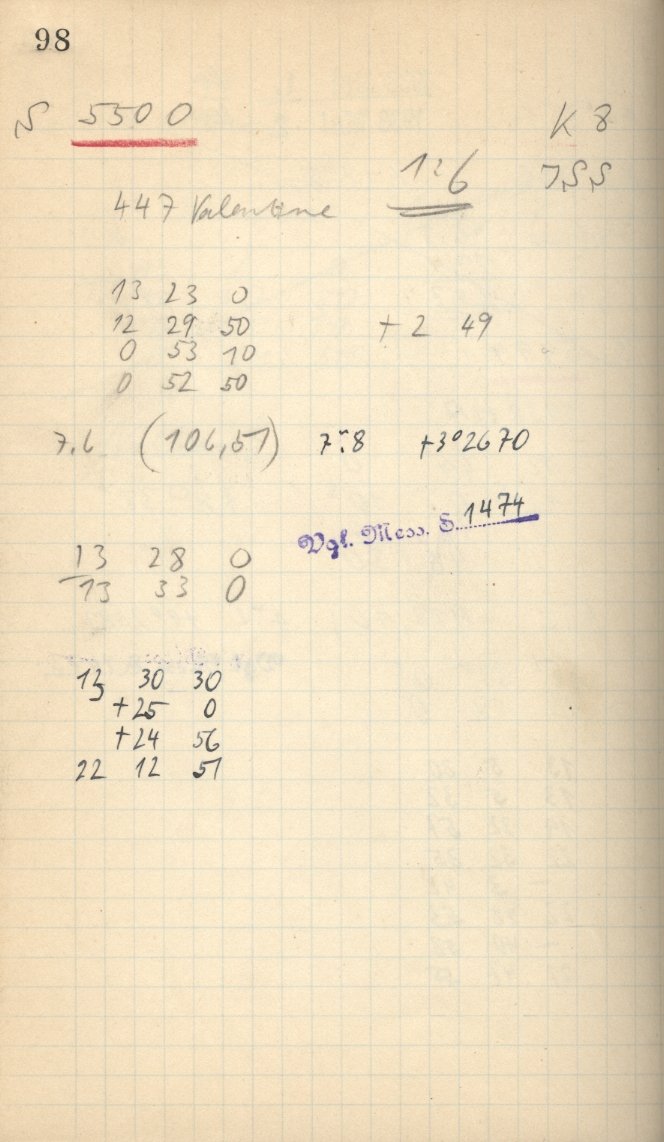 98
S 5500 K 8
126 JSS
447 Valentine
13 23 0
12 29 50 + 2 49
0 53 10
0 52 50
7.6 (106,51) 7.̈8 +3°2670
Vgl. Mess. S. 1474
13 28 0
13 33 0
13 30 30
+25 0
+24 56
22 12 51